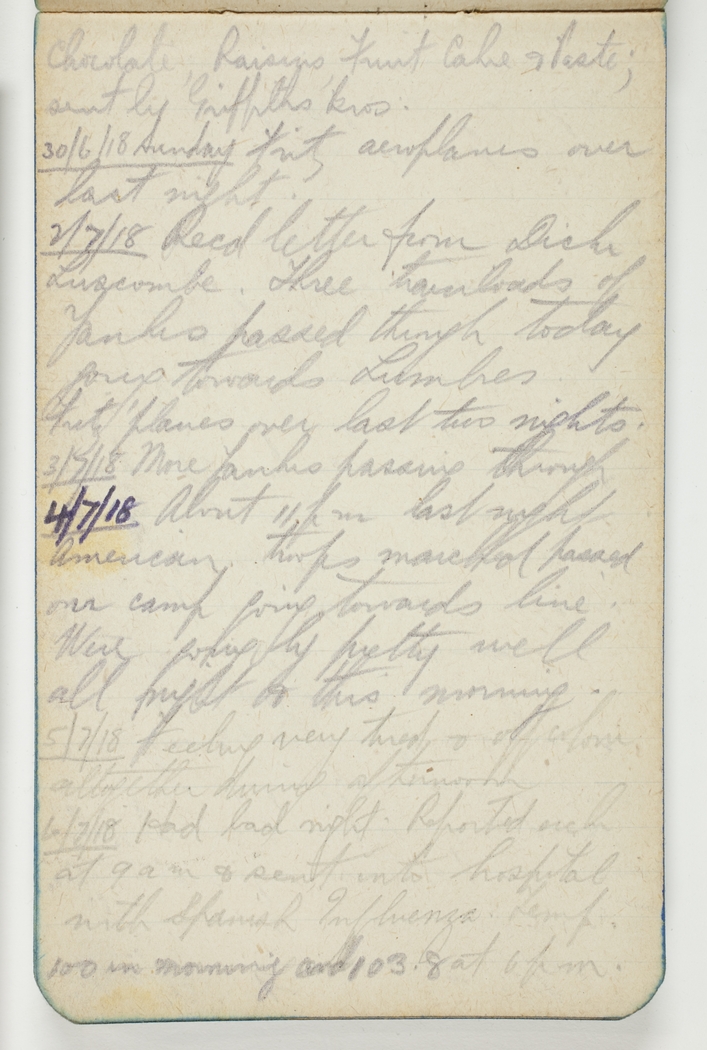 Chocolate, Raisins, Fruit Cake & Paste;
sent by Griffiths Bros.
30/6/18 Sunday Fritz aeroplanes over
last night.
2/7/18 Recd letter from Dick
Luscombe. Three trainloads of
Yanks passed through today
going towards Lumbres
Fritz planes over last two nights.
3/7/18 More Yanks passing through
4/7/18 About 11 p m last night
American troops marched passed
our camp going towards line.
Were going by pretty well
all night & this morning.
5/7/18 Feeling very tired & off colour
altogether during afternoon
6/7/18 Had bad night. Reported sick
at 9 a m & sent into hospital
with Spanish Influenza. Temp.
100 in morning and 103.8 at 6 p m.